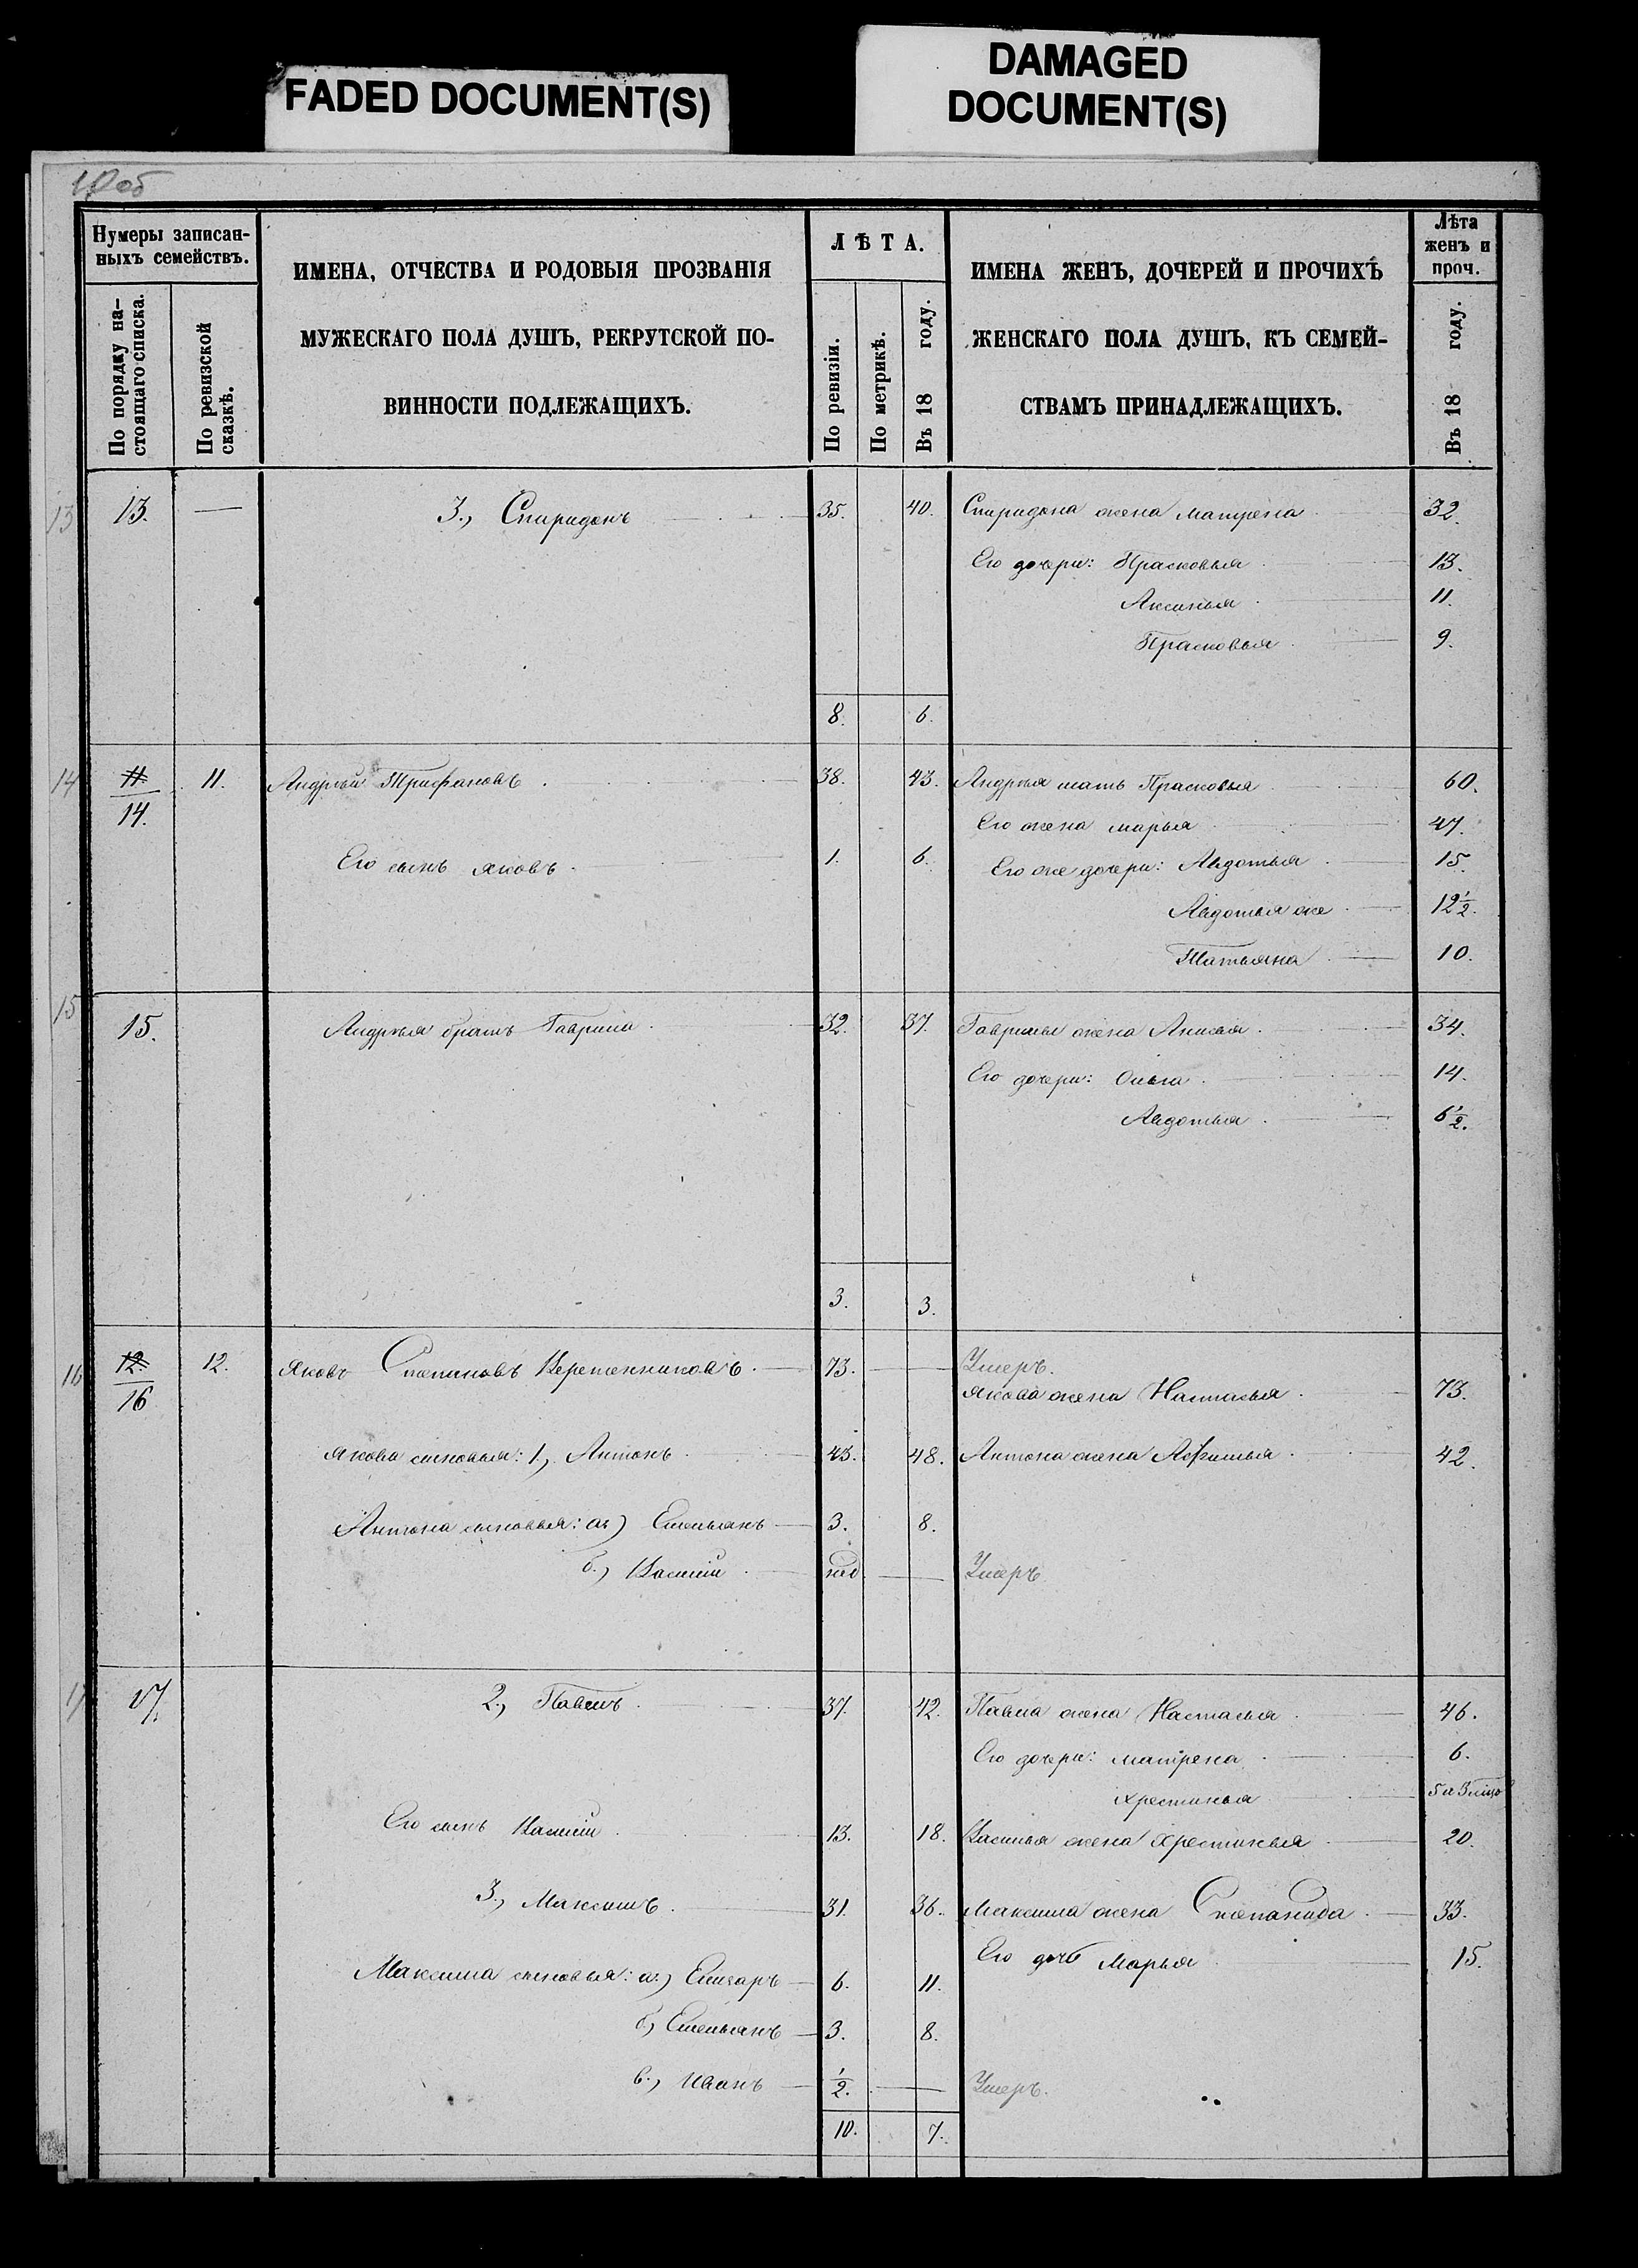 FADED DOCUMENT(S)
DAMAGED
DOCUMENT(S)
Нумеры записан-
ныхъ семействъ.
По порядку на-
стоящаго списка.
По ревизской
сказкѣ.
ИМЕНА, ОТЧЕСТВА И РОДОВЫЯ ПРОЗВАНІЯ
МУЖЕСКАГО ПОЛА ДУШЪ, РЕКРУТСКОЙ ПО-
ВИННОСТИ ПОДЛЕЖАЩИХЪ.
ЛѢТА.
По ревизіи.
По метрикѣ.
Въ 18 году.
ИМЕНА ЖЕНЪ, ДОЧЕРЕЙ И ПРОЧИХЪ
ЖЕНСКАГО ПОЛА ДУШЪ, КЪ СЕМЕЙ-
СТВАМЪ ПРИНАДЛЕЖАЩИХЪ.
Лѣта
женъ и
проч.
Въ 18 году.
13 13. — 3., Спиридонъ 35. 40. Спиридона жена Матрена 32.
Его дочери: Прасковья 13.
Аксинья 11.
Прасковья 9.
8. 6.
14 11 11. Андрей Трифановъ 38. 43. Андрея мать Прасковья 60.
14. Его жена Марья 47.
Его сынъ Яковъ 1. 6. Его же дочери: Авдотья 15.
Авдотья же 12 1/2.
Татьяна 10.
15 15. Андрея братъ Гаврила 32. 37. Гаврилы жена Анисья 34.
Его дочери: Ольга 14.
Авдотья 6 1/2.
3. 3.
16 12. 12. Яковъ Степановъ Веретенниковъ 73. — Умеръ.
16 Якова жена Настасья 73.
Якова сыновья: 1, Антонъ 43. 48. Антона жена Афимья 42.
Антона сыновья: а) Емельянъ 3. 8.
б., Василій нед — Умеръ
17 17. 2., Павелъ 37. 42. Павла жена Настасья 46.
Его дочери: Матрена 6.
Хрестинья
Его сынъ Василій 13. 18. Василья жена Хрестинья 20.
3., Максимъ 31. 36. Максима жена Степанида 33.
Его дочь Марья 15.
Максима сыновья: а., Елизаръ 6. 11.
б, Емельянъ 3. 8.
в., Иванъ 1/2. — Умеръ.
10. 7.